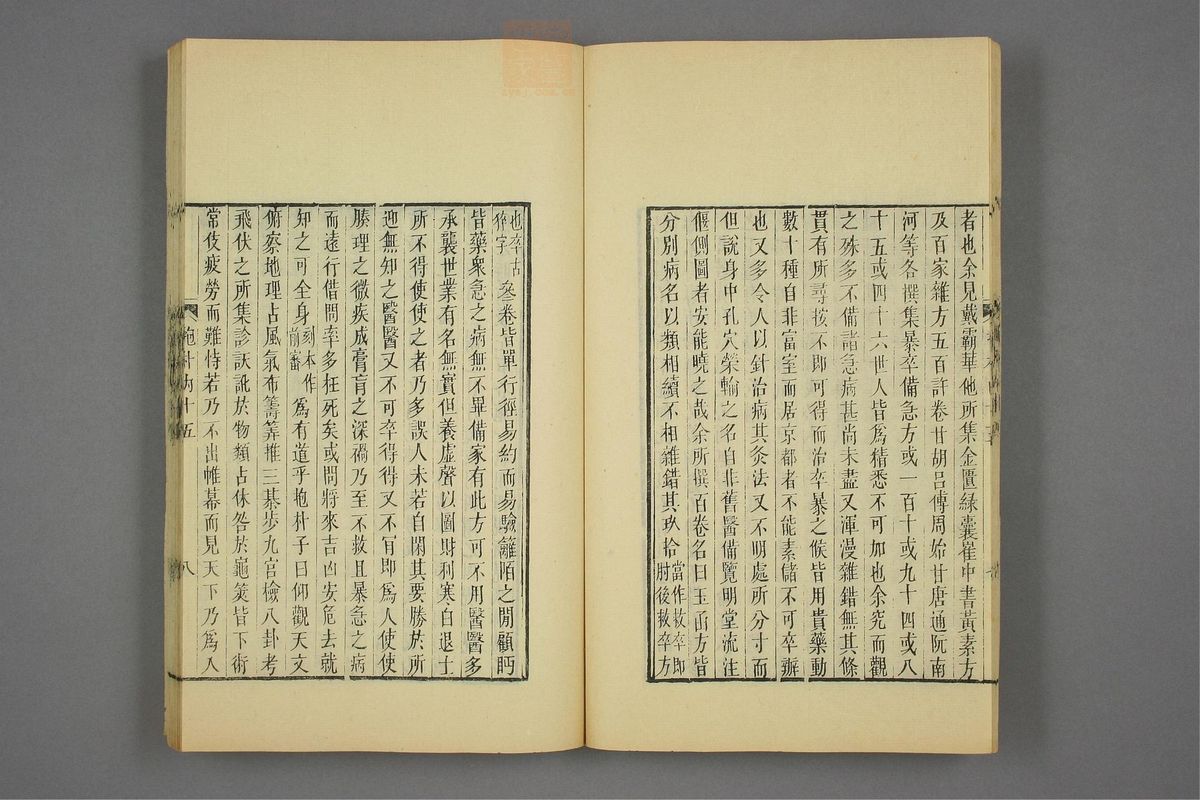 者也余見戴霸華他所集金匱綠囊崔中書黃素方
及百家雜方五百許卷甘胡呂傅周始甘唐通阮南
河等各撰集暴卒備急方或一百十或九十四或八
十五或四十六世人皆爲精悉不可加也余究而觀
之殊多不備諸急病甚尚未盡又渾漫雜錯無其條
貫有所尋按不即可得而治卒暴之候皆用貴藥動
數十種自非富室而居京都者不能素儲不可卒辦
也又多令人以針治病其灸法又不明處所分寸而
但說身中孔穴榮輸之名自非舊醫備覽明堂流注
偃側圖者安能曉之哉余所撰百卷名曰玉函方皆
分別病名以類相續不相雜錯其玖拾當作救卒即
肘後救卒方
也卒古
猝字叄卷皆單行徑易約而易驗籬陌之閒顧眄
皆藥衆急之病無不畢備家有此方可不用醫醫多
承襲世業有名無實但養虛聲以圖財利寒白退士
所不得使使之者乃多誤人未若自閑其要勝於所
迎無知之醫醫又不可卒得得又不肯即爲人使使
腠理之微疾成膏肓之深禍乃至不救且暴急之病
而遠行借問率多枉死矣或問將來吉凶安危去就
知之可全身刻本作
前審爲有道乎抱朴子曰仰觀天文
俯察地理占風氣布籌筭推三棊步九宮檢八卦考
飛伏之所集診訞訛於物類占休咎於龜筴皆下術
常伎疲勞而難恃若乃不出帷幕而見天下乃爲人
抱朴內十五
八